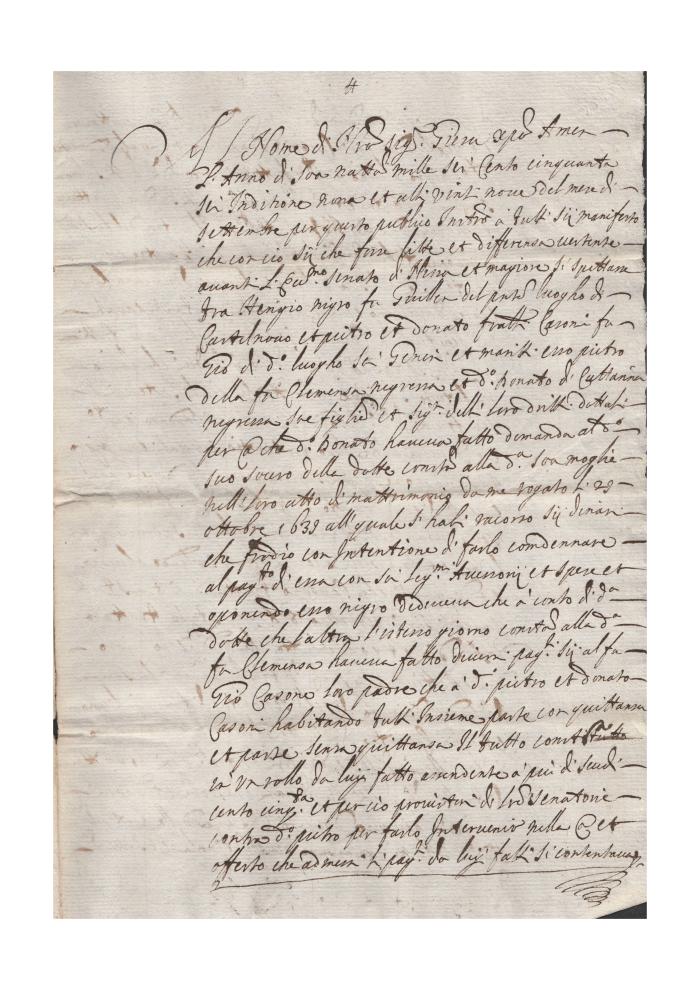 4
Nome di Nro Sigr Giesu Xpo Amen
L'Anno di Soa nattà mille sei Cento cinquanta
sei Inditione nona et alli vinti nove del mese di
settembre per questo publico Instro à tutti sij manifesto
che con cio sij che fusse litte et differensa vertente
avanti L'Eccmo senato di Nissa et magiore si spettasse
tra Henrigio nigro fu Guillen del pnte luogho di
Castelnovo et pietro et donato fratti Casoni fu
Gio di do luogho soi Generi et mariti esso pietro
della fu Clemensa negressa et do Donato di Cattarina
negressa sue figlie et sigri delli loro dritti dottali
per che do Donato haveva fatto domanda al do
suo socero della dotte constà alla da soa moglie
nell loro atto di mattrimonio da me rogato li 29
ottobre 1639 all quale si habi racorso sij dinari
che frodio con Intentione di farlo comdennare
al pagto di essa con soi legmi Accessorij et spese et
oponendo esso nigro dedoceva che à conto di da
dotte che l'altra l'istesso giorno constà alla da
fu Clemensa haveva fatto diversi pagti sij al fu
Gio Casone loro padre che à di pietro et donato
Casoni habitando tutti Insieme parte con quittansa
et parte senza quittansa Il tutto
in un rollo da luy fatto assendente à piu di scudi
cento cinqta et per cio provista di lre senatorie
contra do pietro per farlo Intervenir nella et
offerto che admessi li pagti da luy fatti si contentava